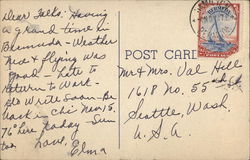 Dear Folks: Having
a grand time in
Bermuda - Weather
nice & flying was
good - hate to
return to work -
do write soon - Be
back in Chi Nov 15.
76° here today - Sun
too Love,
Elma
POST CARD
Mr & Mrs. Val Hell
1618 No. 55
Seattle, Wash.
U.S.A.